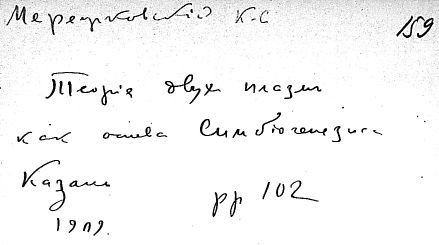 Мережковскій К.С
159
Теорія двух плазм
как основа Симбіогенезиса
Казань
pp 102
1909.